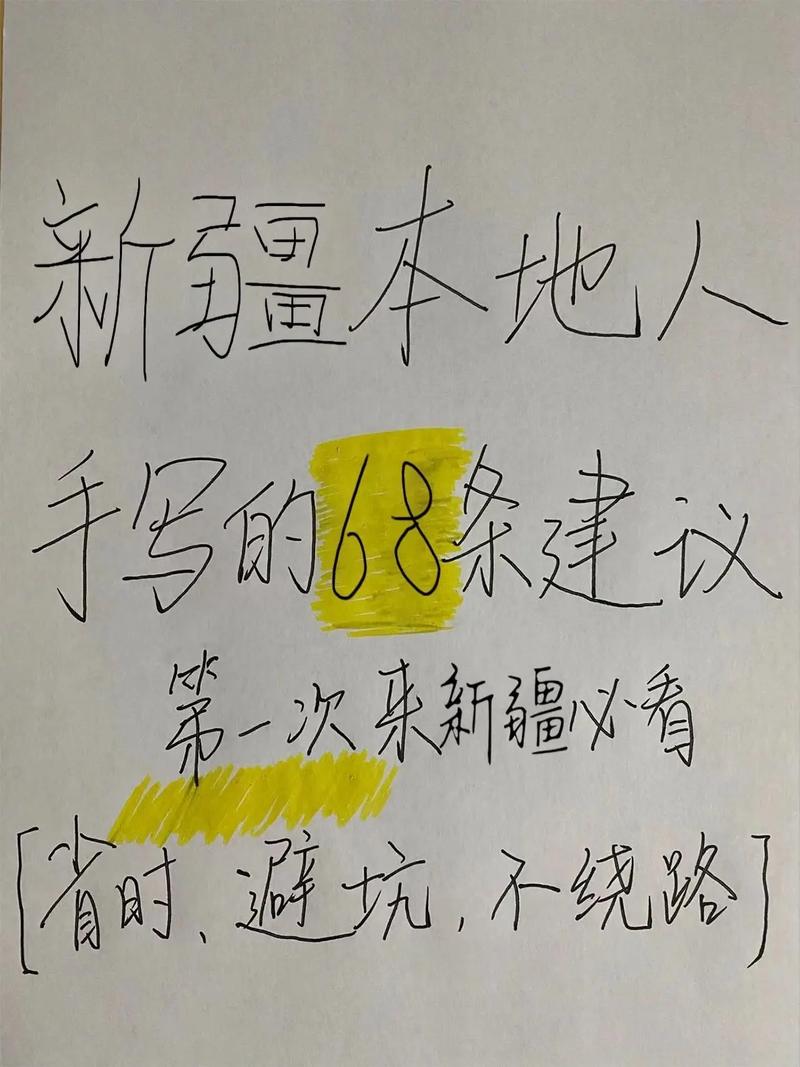 新疆本地人
手写的68条建议
第一次来新疆必看
[省时、避坑,不绕路]